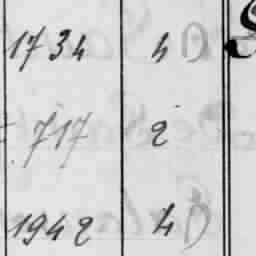 1734 4
717 2
1942 4